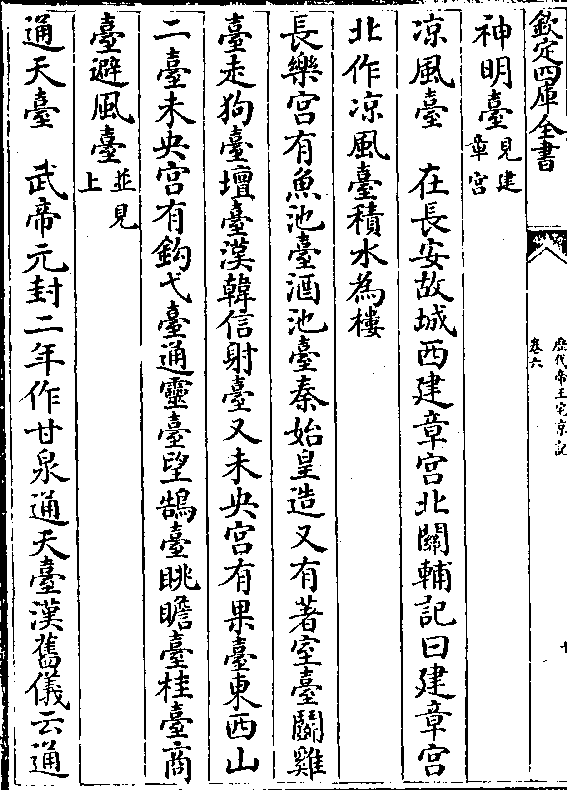 欽定四庫全書
歷代帝王宅京記
卷六
神明臺見建章宫
凉風臺　在長安故城西建章宫北關輔記曰建章宫
北作凉風臺積水為樓
長樂宫有魚池臺酒池臺秦始皇造又有著室臺鬭雞
臺走狗臺壇臺漢韓信射臺又未央宫有果臺東西山
二臺未央宫有鈎弋臺通靈臺望鵠臺眺瞻臺桂臺商
臺避風臺並見上
通天臺　武帝元封二年作甘泉通天臺漢舊儀云通